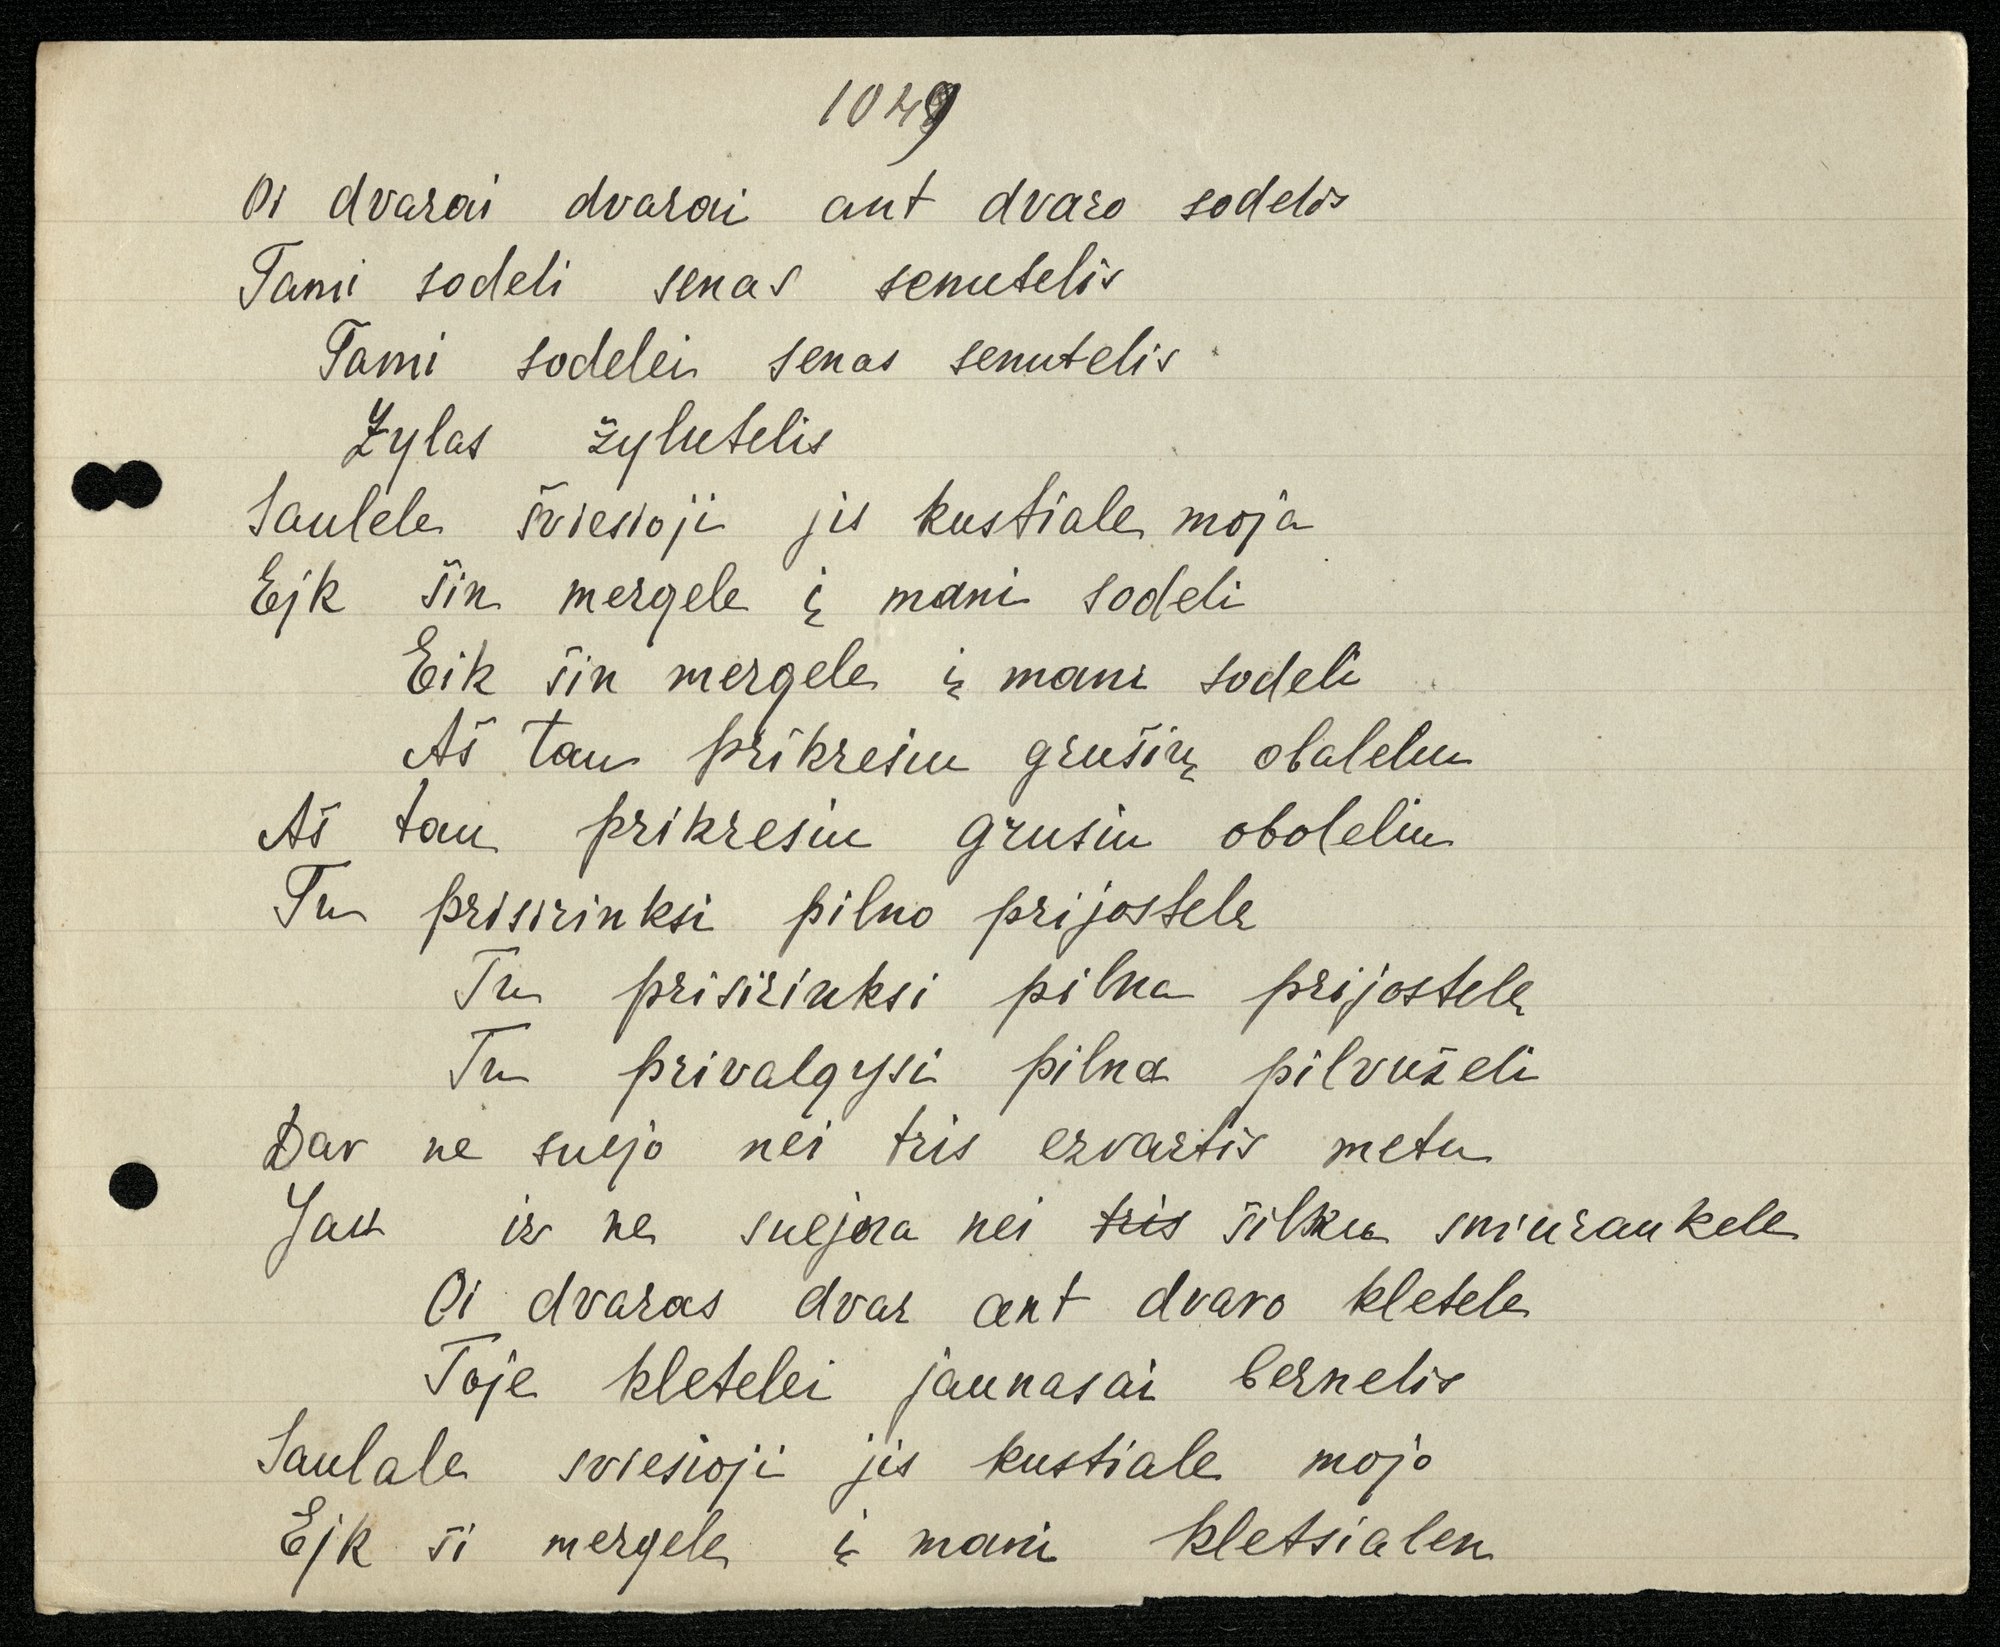 1049
Oi dvarai dvarai ant dvaro sodelis
Tami sodeli senas senutelis
Tami sodelei senas senutelis
Žylas žylutelis
Saulele šviesioji jis kustiale moja
Ejk šin mergele į mani sodeli
Eik šin mergele į mani sodeli
Aš tau prikresiu grušių obaleliu
Aš tau prikresiu grusiu oboleliu
Tu prisirinksi pilno prijostele
Tu prisirinksi pilna prijostelę
Tu privalgysi pilna pilvuželi
Dar ne suejo nei tris ezvartis metu
Jau ir ne suejna nei tris šilku sniuraukele
Oi dvaras dvar ant dvaro kletele
Toje kletelei jaunasai bernelis
Saulale sviesioji jis kustiale mojo
Ejk ši mergele į mani kletsialen